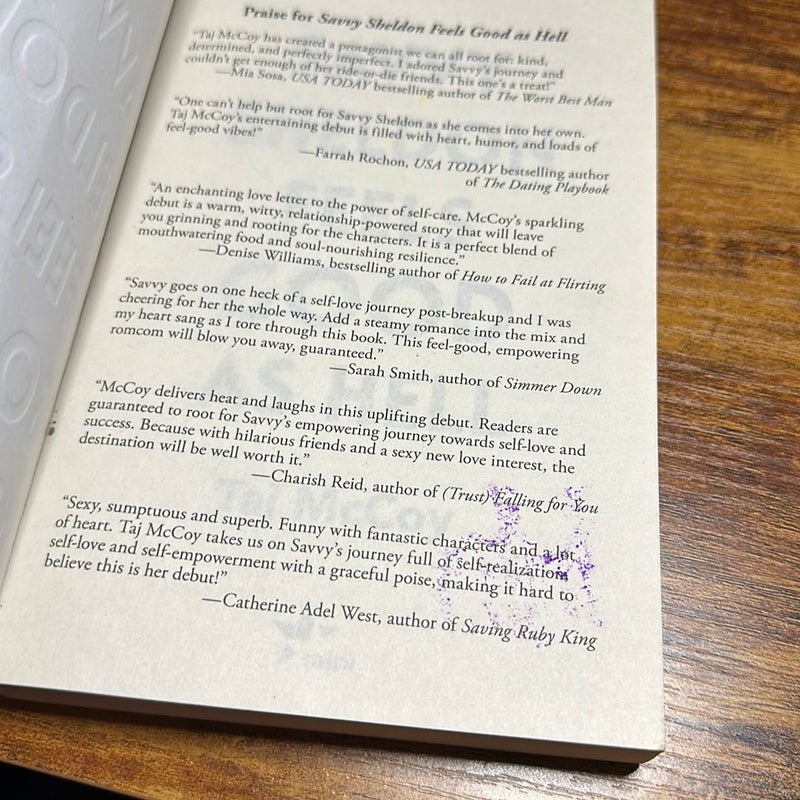 Praise for Savvy Sheldon Feels Good as Hell
“Taj McCoy has created a protagonist we can all root for: kind,
determined, and perfectly imperfect. I adored Savvy’s journey and
couldn’t get enough of her ride-or-die friends. This one’s a treat!”
—Mia Sosa, USA TODAY bestselling author of The Worst Best Man
“One can’t help but root for Savvy Sheldon as she comes into her own.
Taj McCoy’s entertaining debut is filled with heart, humor, and loads of
feel-good vibes!”
—Farrah Rochon, USA TODAY bestselling author
of The Dating Playbook
“An enchanting love letter to the power of self-care. McCoy’s sparkling
debut is a warm, witty, relationship-powered story that will leave
you grinning and rooting for the characters. It is a perfect blend of
mouthwatering food and soul-nourishing resilience.”
—Denise Williams, bestselling author of How to Fail at Flirting
“Savvy goes on one heck of a self-love journey post-breakup and I was
cheering for her the whole way. Add a steamy romance into the mix and
my heart sang as I tore through this book. This feel-good, empowering
romcom will blow you away, guaranteed.”
—Sarah Smith, author of Simmer Down
“McCoy delivers heat and laughs in this uplifting debut. Readers are
guaranteed to root for Savvy’s empowering journey towards self-love and
success. Because with hilarious friends and a sexy new love interest, the
destination will be well worth it.”
—Charish Reid, author of (Trust) Falling for You
“Sexy, sumptuous and superb. Funny with fantastic characters and a lot
of heart. Taj McCoy takes us on Savvy’s journey full of self-realization,
self-love and self-empowerment with a graceful poise, making it hard to
believe this is her debut!”
—Catherine Adel West, author of Saving Ruby King